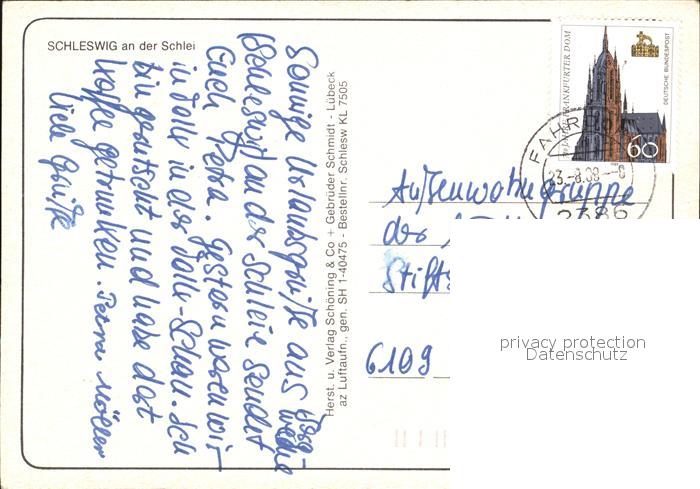 SCHLESWIG an der Schlei
Sonnige Urlaubsgrüße aus
Schleswig an der Schlei sendet
Euch Petra. Gestern waren wir
in Dolli in der Dolli-Schau. Ich
bin gerutscht und habe dat
Kaffee getrunken. Petra Möller
Viele Grüße
Herst. u. Verlag Schöning & Co + Gebrüder Schmidt - Lübeck
az Luftaufn., gen. SH 1-40475 - Bestellnr. Schlesw KL 7505
FRANKFURTER DOM
DEUTSCHE BUNDESPOST
60
FAHR
2386
Außenwohngruppe
der
Stift
6109
privacy protection
Datenschutz